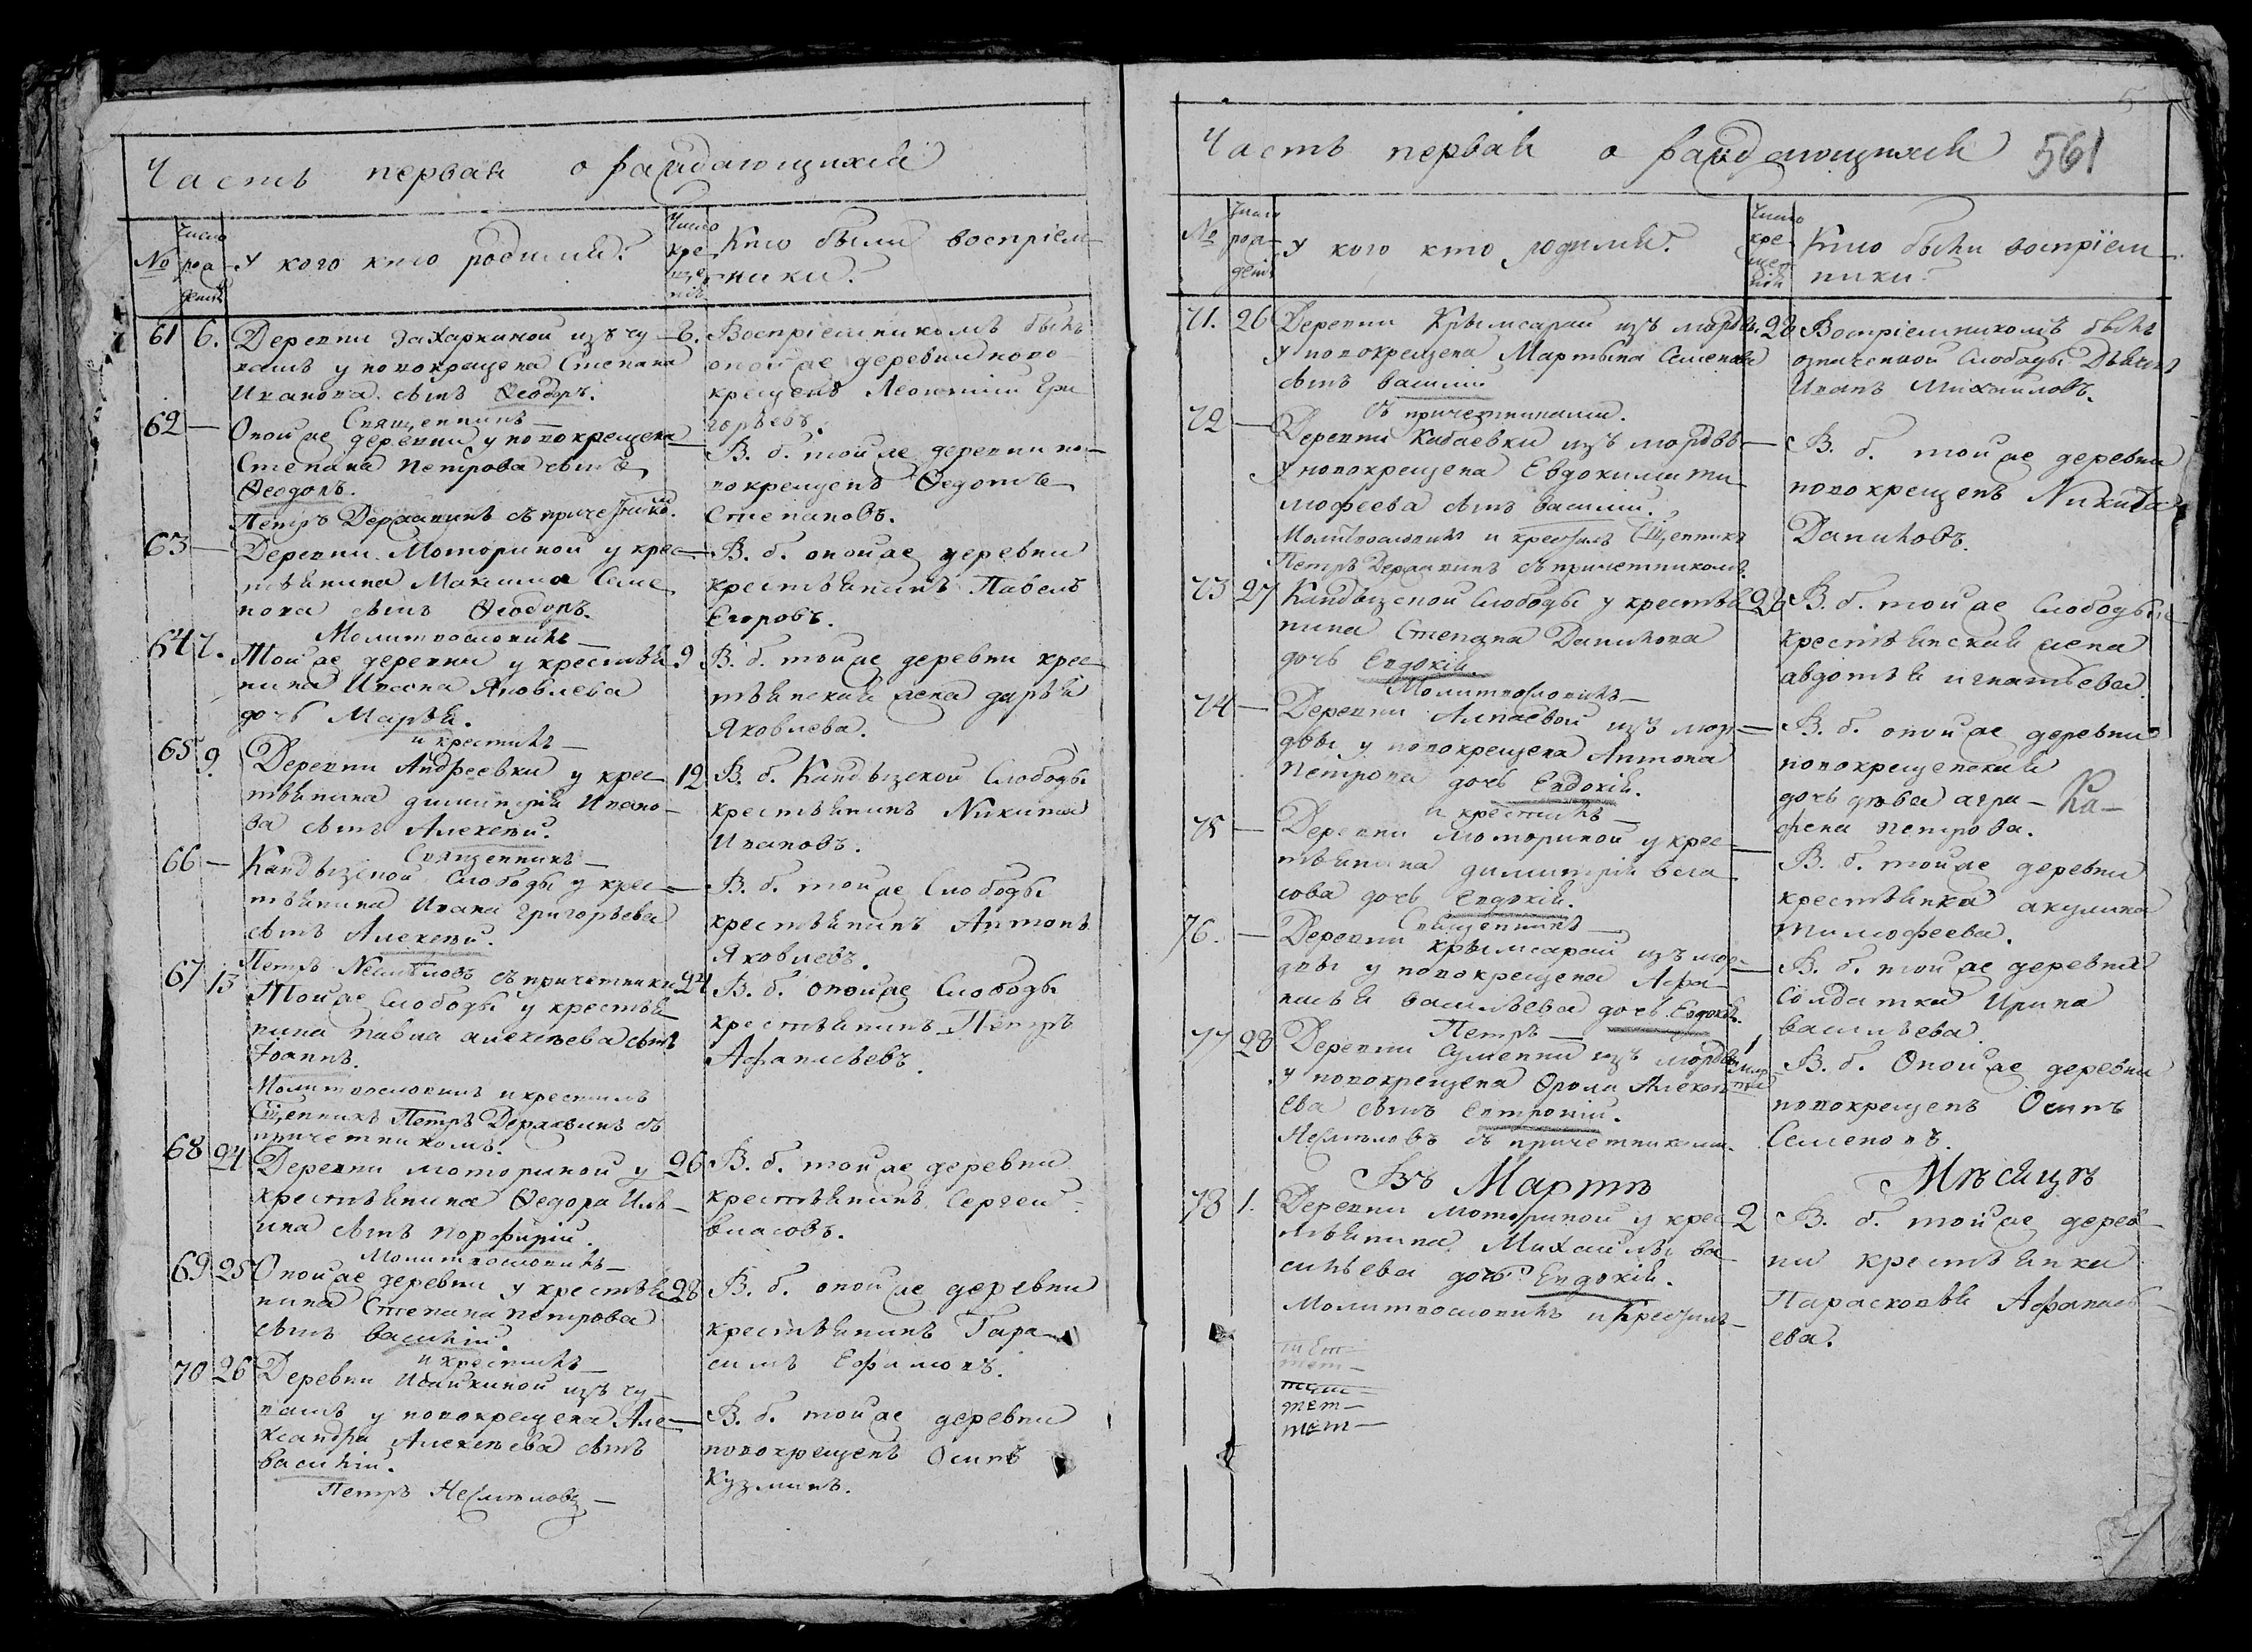 Часть первая о раждающихся
№
Число рождені
У кого кто родился?
Число крещенія
Кто были воспріем-
ники?
61 6. Деревни Захаркиной изъ чу-
вашъ у новокрещена Степана
Иванова сынъ Ѳеодоръ.
6. Воспріемникомъ былъ
оной же деревни ново-
крещенъ Леонтий Гри
горьевъ.
Священникъ —
62 — Оной же деревни у новокрещена
Степана Петрова сынъ
Ѳеодоръ.
Петръ Державинъ съ причетнико.
— В. б. той же деревни но-
вокрещенъ Ѳедотъ
Степановъ.
63 — Деревни Моториной у крес-
тьянина Максима Семе
нова сынъ Ѳеодоръ.
Молитвословилъ —
— В. б. оной же деревни
крестьянинъ Павелъ
Егоровъ.
64 7. Той же деревни у крестья
нина Ивана Яковлева
дочь Марья.
и крестилъ —
9 В. б. той же деревни крес-
тьянская жена дарья
Яковлева.
65 9. Деревни Андреевки у крес
тьянина димитрія Ивано-
ва сынъ Алексей.
Священникъ —
12 В. б. Кандызской Слободы
крестьянинъ Никита
Ивановъ.
66 — Кандызской Слободы у крес-
тьянина Ивана Григорьева
сынъ Алексей.
Петръ Несмѣловъ съ причетники
— В. б. той же Слободы
крестьянинъ Антонъ
Яковлевъ.
67 13 Той же Слободы у крестья
нина Павла алексеева сынъ
Іоаннъ.
Молитвословилъ и крестилъ
Сщ҃енникъ Петръ Державинъ съ
причетникомъ.
24 В. б. оной же Слободы
крестьянинъ Петръ
Афанасьевъ.
68 24 Деревни моториной у
крестьянина Ѳедора Иль-
ина сынъ порфирій.
Молитвословилъ —
26 В. б. той же деревни
крестьянинъ Сергей
власовъ.
69 25 Оной же деревни у крестья
нина Степана петрова
сынъ василій.
и крестилъ —
28 В. б. оной же деревни
крестьянинъ Гара-
симъ Ефимовъ.
70 26 Деревни Исайкиной изъ чу-
вашъ у новокрещена Але-
ксандра Алексеева сынъ
василій.
Петръ Несмѣловъ —
— В. б. той же деревни
новокрещенъ Осипъ
Кузминъ.
Часть первая о раждающихся 561
№
Число рождені
У кого кто родился?
Число крещенія
Кто были воспріем-
ники?
71. 26 Деревни Крымсарай изъ мордвы
у новокрещена Мартына Семенова
сынъ василий
съ причетниками.
28 Воспріемникомъ былъ
означенной Слободы Дьячекъ
Иванъ Михайловъ.
72 — Деревни Кабаевки изъ мордвы
у новокрещена Евдокима ти
мофеева сынъ василий.
Молитвословилъ и крестилъ Сщ҃енникъ
Петръ Державинъ съ причетникомъ.
— В. б. той же деревни
новокрещенъ Никита
Даниловъ.
73 27 Кандызской Слободы у крестья
нина Степана Данилова
дочь Евдокія.
Молитвословилъ —
28 В. б. той же Слободы
крестьянская жена
авдотья игнатьева.
74 — Деревни Алпаевой изъ мор-
двы у новокрещена Антона
петрова дочь Евдокія.
и крестилъ —
— В. б. оной же деревни
новокрещенская
дочь дѣва агра-
фена петрова.
Ка-
75 — Деревни Моториной у крес-
тьянина димитрія вла
сова дочь Евдокія.
Священникъ —
— В. б. той же деревни
крестьянка акулина
тимофеева.
76. — Деревни крымсарай изъ мор-
двы у новокрещена Афа-
насья васильева дочь Евдокія.
Петръ —
— В. б. той же деревни
Солдатка Ирина
васильева.
77 28 Деревни Сулеевки изъ мордвы
у новокрещена Фрола Алексе
ева сынъ Евтропій.
Несмѣловъ съ причетниками.
1 мар
та
В. б. Оной же деревни
новокрещенъ Осипъ
Семеновъ.
Въ Мартѣ Мѣсяцѣ
78 1. Деревни моториной у крес
тьянина Михайлы ва
сильева дочь Евдокія.
Молитвословилъ и Крестилъ —
2 В. б. той же дерев-
ни крестьянка
Парасковья Афанась-
ева.
тем —
тем —
тем —
тем —